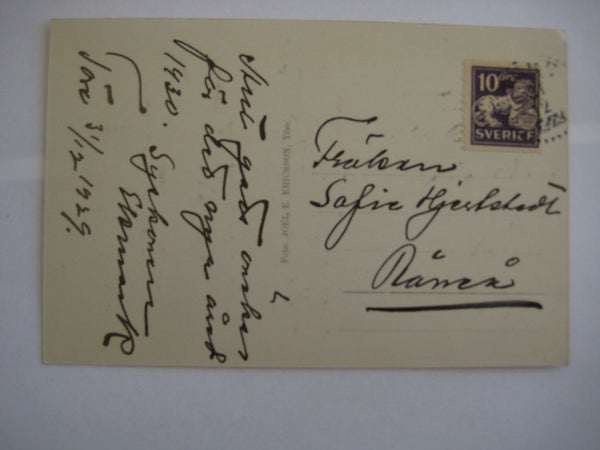 godt önskas
för det nya året
1930. Syskonen
Töre 31/12 1929.
Foto: JOEL E. ERICSSON, Töre
10 öre
SVERIGE
Fröken
Sofie Hjertstedt
Råneå